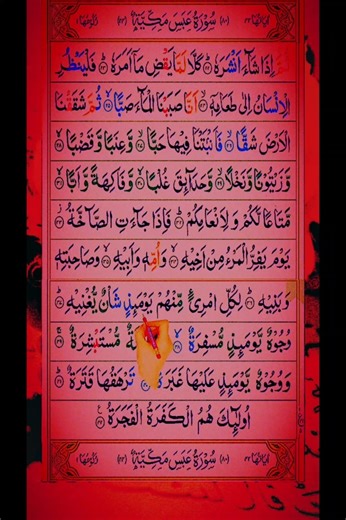 سُوْرَةُ عَبَسَ مَكِّيَّةٌ
اِذَا شَآءَ اَنْشَرَهٗ ﴿٢٢﴾ كَلَّا لَمَّا يَقْضِ مَاۤ اَمَرَهٗ ﴿٢٣﴾ فَلْيَنْظُرِ
الْاِنْسَانُ اِلٰى طَعَامِهٖۤ ﴿٢٤﴾ اَنَّا صَبَبْنَا الْمَآءَ صَبًّا ﴿٢٥﴾ ثُمَّ شَقَقْنَا
الْاَرْضَ شَقًّا ﴿٢٦﴾ فَاَنْۢبَتْنَا فِيْهَا حَبًّا ﴿٢٧﴾ وَّعِنَبًا وَّقَضْبًا ﴿٢٨﴾
وَّزَيْتُوْنًا وَّنَخْلًا ﴿٢٩﴾ وَّحَدَآئِقَ غُلْبًا ﴿٣٠﴾ وَّفَاكِهَةً وَّاَبًّا ﴿٣١﴾
مَّتَاعًا لَّكُمْ وَلِاَنْعَامِكُمْ ﴿٣٢﴾ فَاِذَا جَآءَتِ الصَّآخَّةُ ﴿٣٣﴾
يَوْمَ يَفِرُّ الْمَرْءُ مِنْ اَخِيْهِ ﴿٣٤﴾ وَاُمِّهٖ وَاَبِيْهِ ﴿٣٥﴾ وَصَاحِبَتِهٖ
وَبَنِيْهِ ﴿٣٦﴾ لِكُلِّ امْرِئٍ مِّنْهُمْ يَوْمَئِذٍ شَاْنٌ يُّغْنِيْهِ ﴿٣٧﴾
وُجُوْهٌ يَّوْمَئِذٍ مُّسْفِرَةٌ ﴿٣٨﴾ مُّسْتَبْشِرَةٌ ﴿٣٩﴾
وَوُجُوْهٌ يَّوْمَئِذٍ عَلَيْهَا غَبَرَةٌ ﴿٤٠﴾ تَرْهَقُهَا قَتَرَةٌ ﴿٤١﴾
اُولٰٓئِكَ هُمُ الْكَفَرَةُ الْفَجَرَةُ ﴿٤٢﴾
سُوْرَةُ عَبَسَ مَكِّيَّةٌ